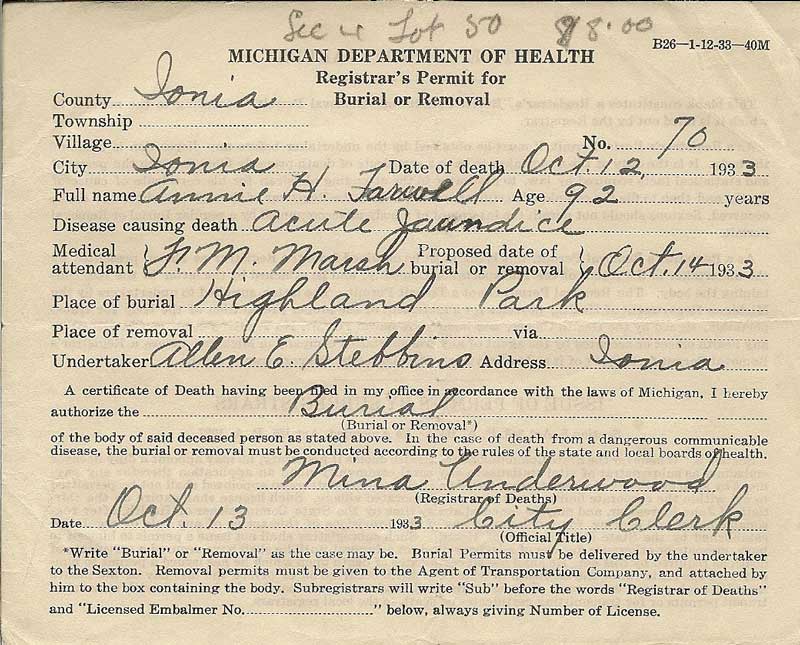 Sec 4 Lot 50 $8.00
B26—1-12-33—40M
MICHIGAN DEPARTMENT OF HEALTH
Registrar's Permit for
Burial or Removal
County Ionia
Township
Village No. 70
City Ionia Date of death Oct. 12, 1933
Full name Annie H. Farwell Age 92 years
Disease causing death Acute Jaundice
Medical attendant F. M. Marsh Proposed date of burial or removal Oct. 14 1933
Place of burial Highland Park
Place of removal via
Undertaker Allen E. Stebbins Address Ionia
A certificate of Death having been filed in my office in accordance with the laws of Michigan, I hereby
authorize the Burial
(Burial or Removal*)
of the body of said deceased person as stated above. In the case of death from a dangerous communicable
disease, the burial or removal must be conducted according to the rules of the state and local boards of health.
Mina Underwood
(Registrar of Deaths)
Date Oct. 13 1933 City Clerk
(Official Title)
*Write "Burial" or "Removal" as the case may be. Burial Permits must be delivered by the undertaker
to the Sexton. Removal permits must be given to the Agent of Transportation Company, and attached by
him to the box containing the body. Subregistrars will write "Sub" before the words "Registrar of Deaths"
and "Licensed Embalmer No. " below, always giving Number of License.